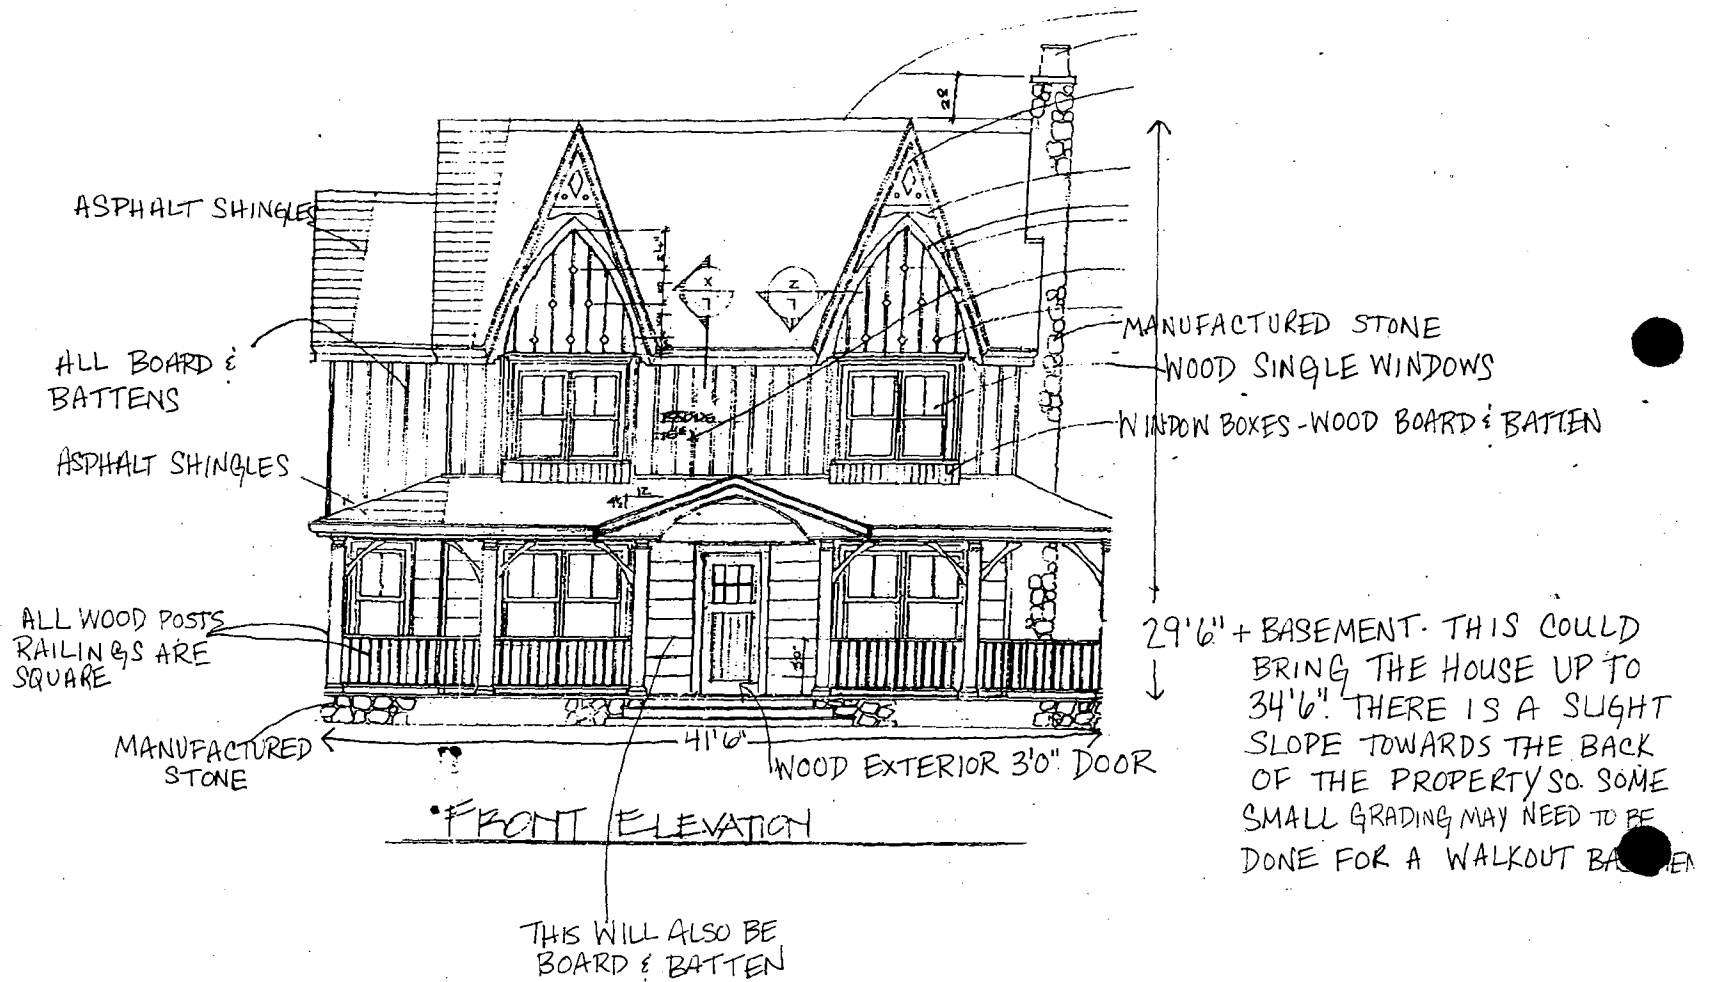 ASPHALT SHINGLES
ALL BOARD &
BATTENS
ASPHALT SHINGLES
ALL WOOD POSTS
RAILINGS ARE
SQUARE
MANUFACTURED
STONE
X
L
Z
L
4½
12
MANUFACTURED STONE
WOOD SINGLE WINDOWS
WINDOW BOXES - WOOD BOARD & BATTEN
29'6" + BASEMENT. THIS COULD
BRING THE HOUSE UP TO
34'6". THERE IS A SLIGHT
SLOPE TOWARDS THE BACK
OF THE PROPERTY SO SOME
SMALL GRADING MAY NEED TO BE
DONE FOR A WALKOUT
41'6"
WOOD EXTERIOR 3'0" DOOR
FRONT ELEVATION
THIS WILL ALSO BE
BOARD & BATTEN